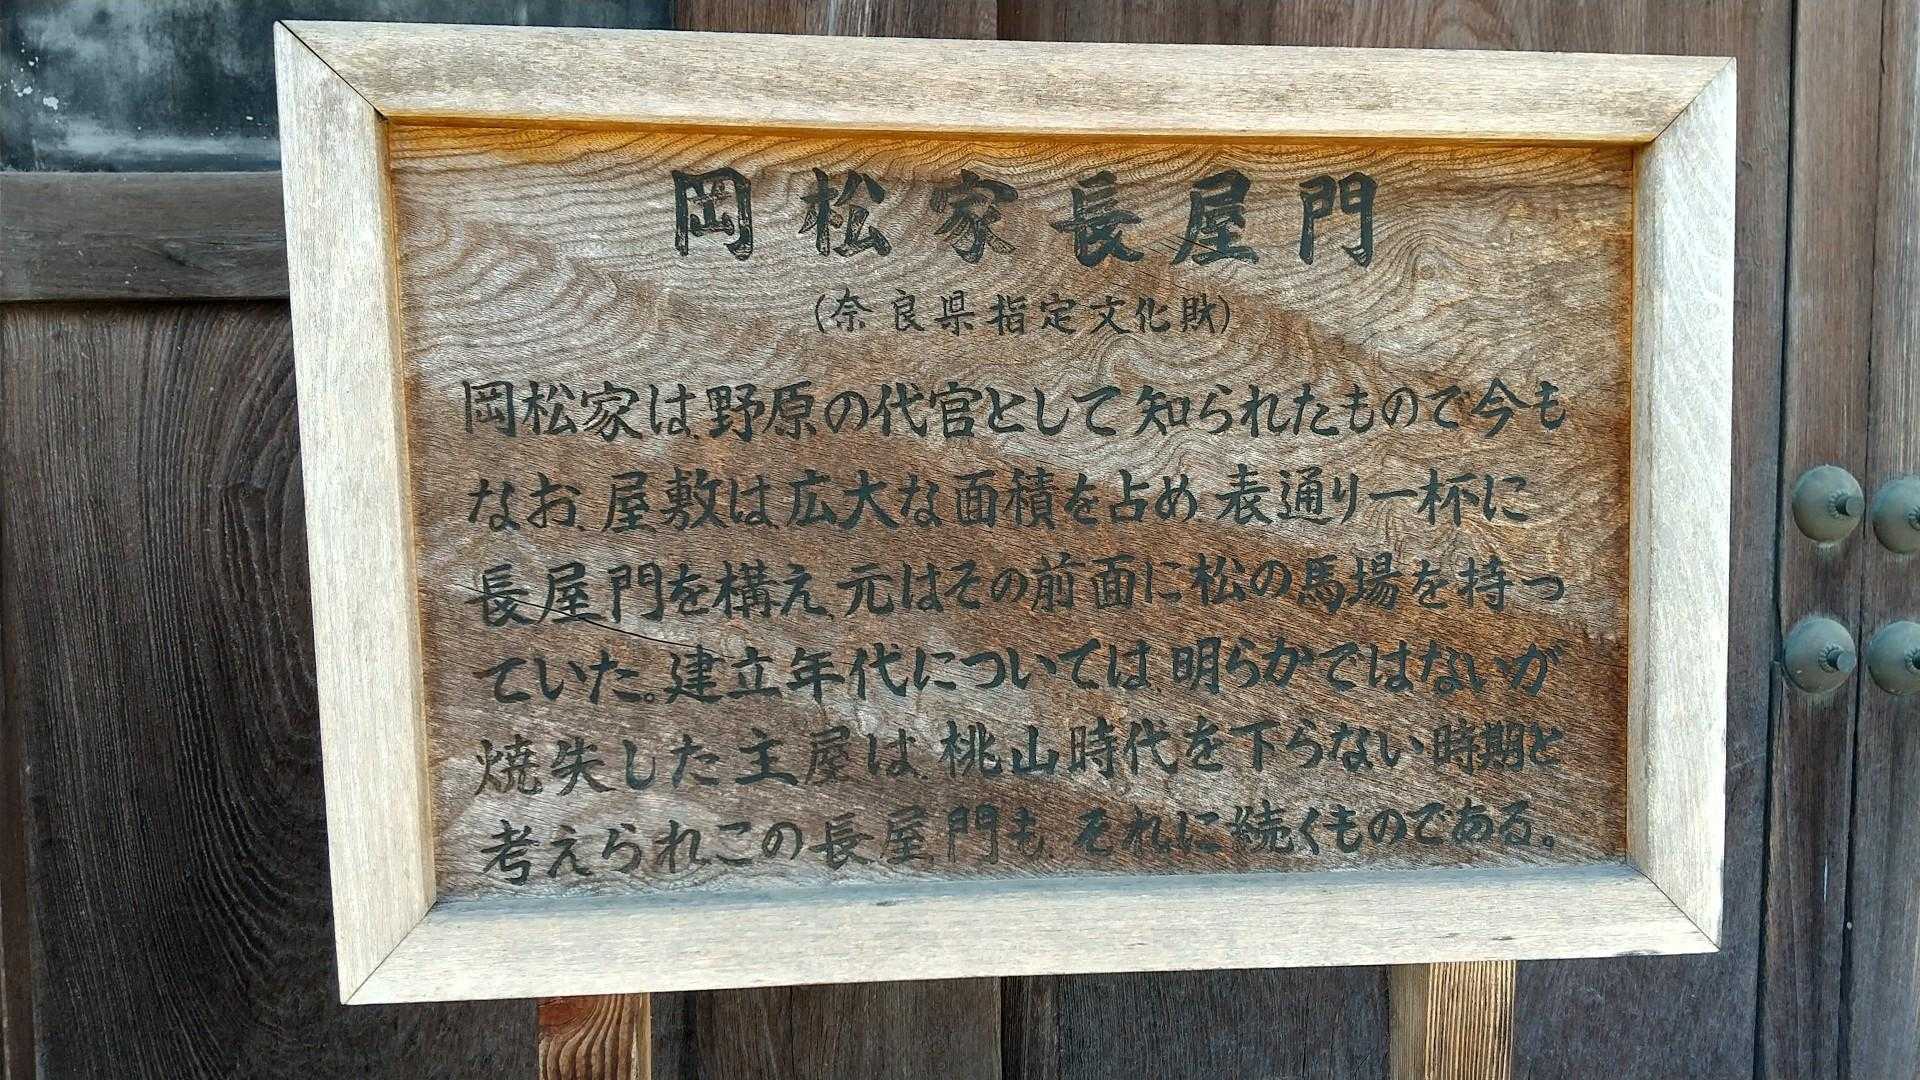 岡松家長屋門
(奈良県指定文化財)
岡松家は、野原の代官として知られたもので今も
なお、屋敷は広大な面積を占め、表通り一杯に
長屋門を構え、元はその前面に松の馬場を持っ
ていた。建立年代については、明らかではないが
焼失した主屋は、桃山時代を下らない時期と
考えられこの長屋門も、それに続くものである。